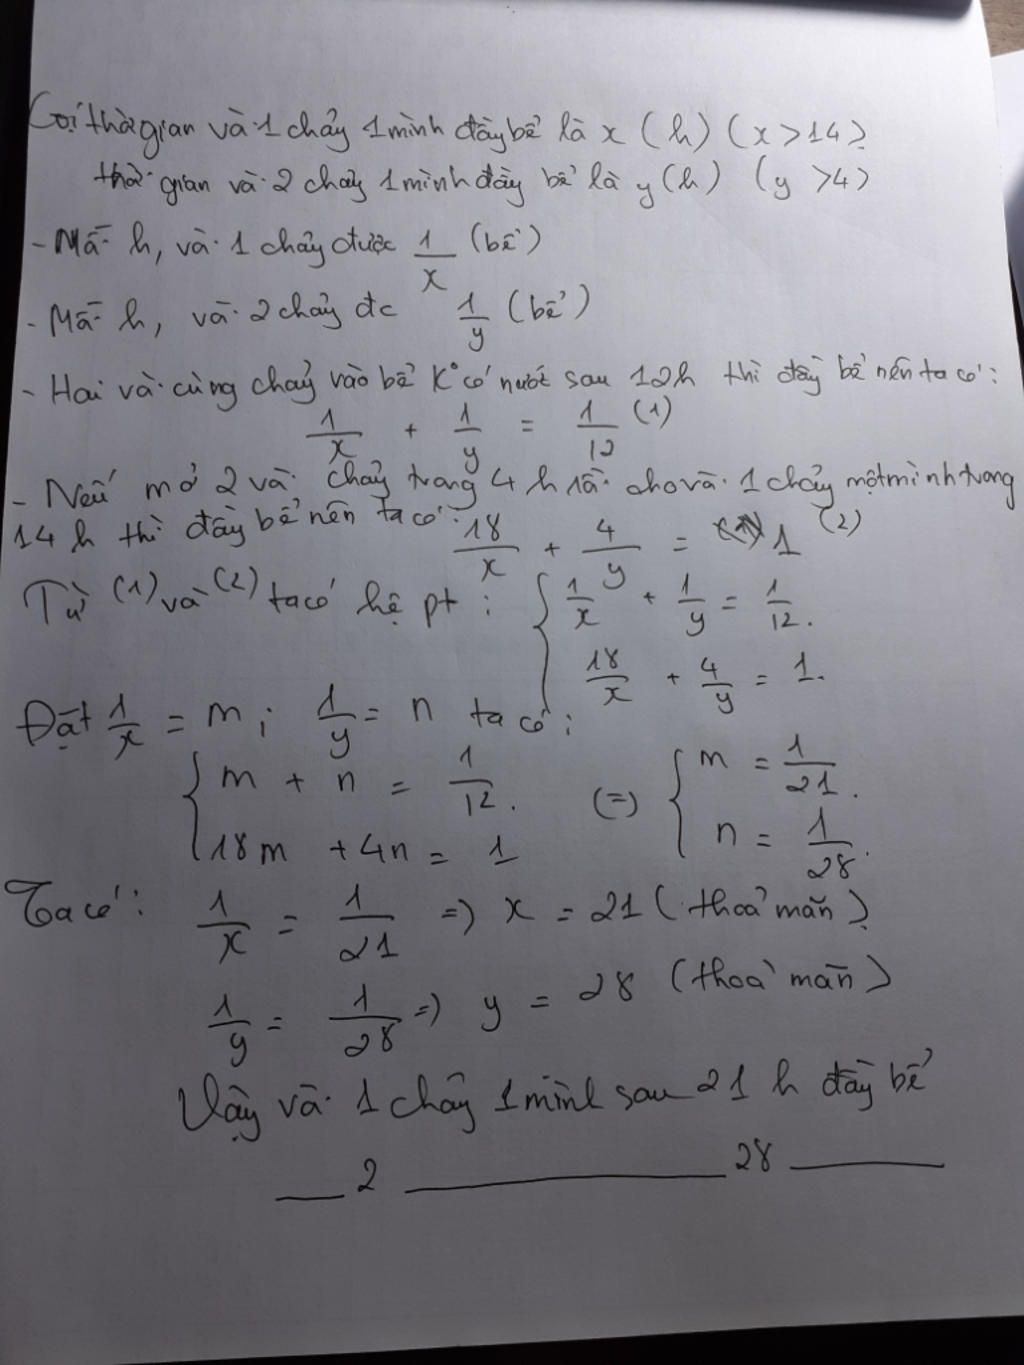 Gọi thời gian vòi 1 chảy 1 mình đầy bể là x (h) (x > 14)
thời gian vòi 2 chảy 1 mình đầy bể là y (h) (y > 4)
- Mỗi h, vòi 1 chảy được 1/x (bể)
- Mỗi h, vòi 2 chảy đc 1/y (bể)
- Hai vòi cùng chảy vào bể K° có nước sau 12h thì đầy bể nên ta có:
1/x + 1/y = 1/12 (1)
- Nếu mở 2 vòi chảy trong 4 h rồi cho vòi 1 chảy một mình trong
14 h thì đầy bể nên ta có:
18/x + 4/y = 1 (2)
Từ (1) và (2) ta có hệ pt : { 1/x + 1/y = 1/12.
18/x + 4/y = 1.
Đặt 1/x = m ; 1/y = n ta có :
{ m + n = 1/12. (=) { m = 1/21.
18m + 4n = 1 n = 1/28.
Ta có : 1/x = 1/21 => x = 21 (thoả mãn)
1/y = 1/28 => y = 28 (thoả mãn)
Vậy vòi 1 chảy 1 mình sau 21 h đầy bể
__ 2 ______ 28 ____